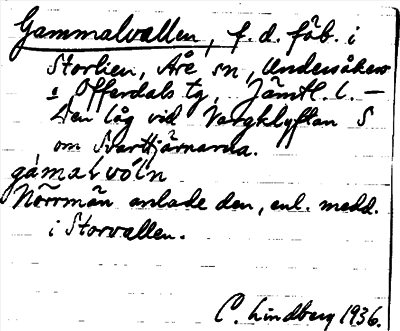 Gammalvallen, f. d. fäb. i
Storlien, Åre sn, Undersåkers
o Offerdals tg, Jämtl. l. —
Den låg vid Vargklyftan S
om Svarttjärnarna.
gámalvóln
Norrmän anlade den, enl. medd.
i Storvallen.
C. Lindberg 1936.